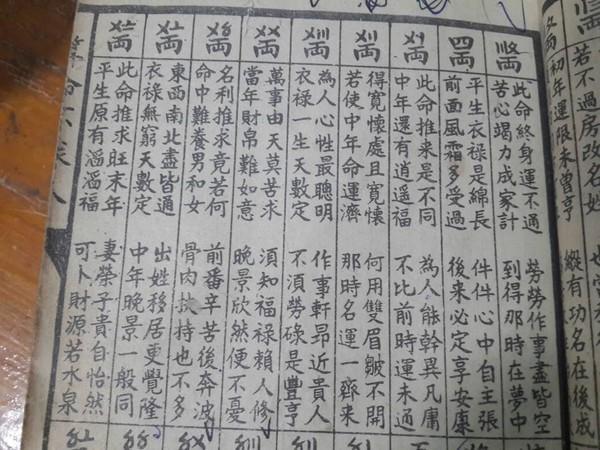 若不過房改名姓
初年運限未曾亨 縱有功名在後成
〣〩両
此命終身運不通 勞勞作事盡皆空
苦心竭力成家計 到得那時在夢中
四両
平生衣祿是綿長 件件心中自主張
前面風霜多受過 後來必定享安康
〤〡両
此命推來是不同 為人能幹異凡庸
中年還有逍遙福 不比前時運未通
〤〢両
得寬懷處且寬懷 何用雙眉皺不開
若使中年命運濟 那時名運一齊来
〤〣両
為人心性最聰明 作事軒昂近貴人
衣祿一生天數定 不須勞碌是豐亨
〤〤両
萬事由天莫苦求 須知福禄賴人修
當年財帛難如意 晚景欣然便不憂
〤〥両
名利推求竟若何 前番辛苦後奔波
命中難養男和女 骨肉扶持也不多
〤〦両
東西南北盡皆通 出姓移居更覺隆
衣祿無窮天數定 中年晚景一般同
〤〧両
此命推求旺末年 妻榮子貴自怡然
平生原有滔滔福 可卜財源若水泉